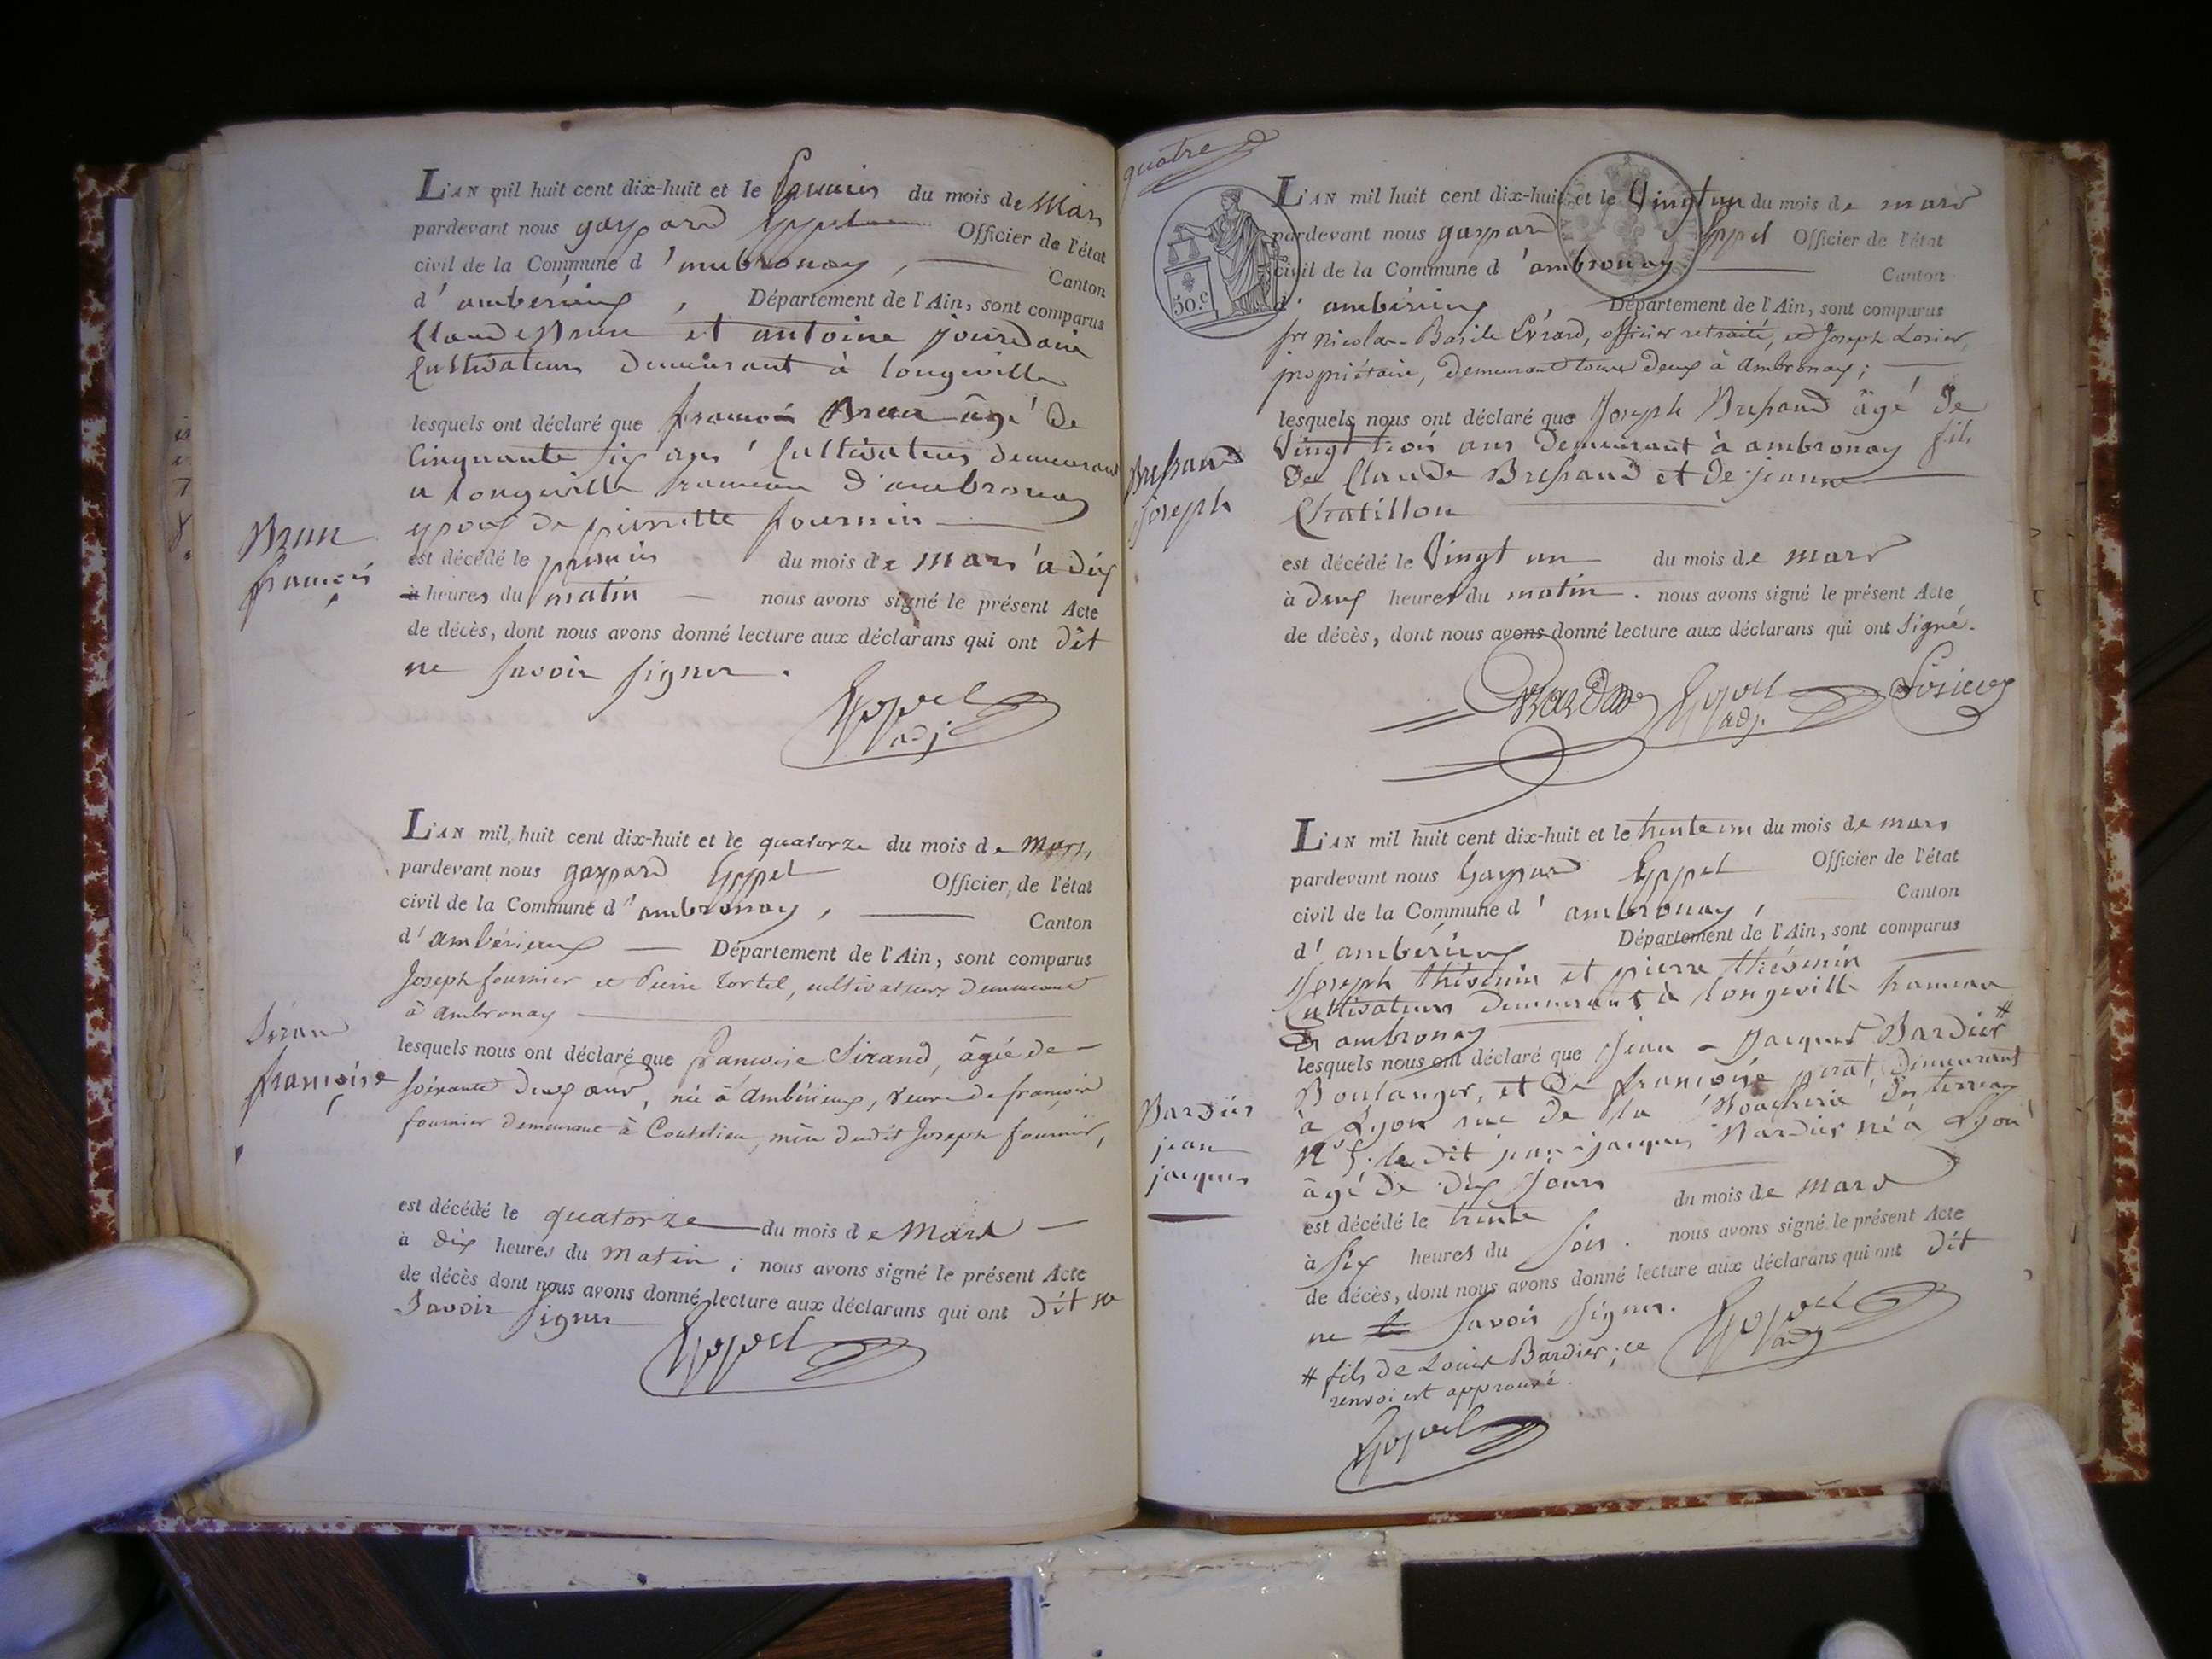 L'AN mil huit cent dix-huit et le premier du mois de Mars
pardevant nous gaspard Eppel Officier de l'état
civil de la Commune d'ambronay, Canton
d'ambérieux, Département de l'Ain, sont comparus
Claude Brun et antoine jourdain
Cultivateurs demeurant à longeville
lesquels ont déclaré que françois Brun âgé de
Cinquante six ans Cultivateur demeurant
a longeville hameau d'ambronay
epoux de pierrette fournier
est décédé le premier du mois de mars a dix
à heures du matin nous avons signé le présent Acte
de décès, dont nous avons donné lecture aux déclarans qui ont dit
ne savoir signer.
Eppel
adj.
Brun
françois
L'AN mil huit cent dix-huit et le quatorze du mois de Mars
pardevant nous gaspard Eppel Officier de l'état
civil de la Commune d'ambronay, Canton
d'ambérieux Département de l'Ain, sont comparus
Joseph fournier et Pierre tortel, cultivateurs demeurant
à ambronay
lesquels nous ont déclaré que françoise Sirand, âgée de
soixante deux ans, née à Ambérieux, veuve de françois
fournier demeurant à Coutelieu, mère dudit Joseph fournier,
est décédé le quatorze du mois de Mars
à dix heures du Matin ; nous avons signé le présent Acte
de décès dont nous avons donné lecture aux déclarans qui ont dit ne
Savoir Signer
Eppel
Sirand
françoise
quatre
50.c
L'AN mil huit cent dix-huit et le Vingt un du mois de mars
pardevant nous gaspard Eppel Officier de l'état
civil de la Commune d'ambronay Canton
d'ambérieux Département de l'Ain, sont comparus
srs Nicolas-Basile Evrard, officier retraité, et Joseph Losier,
propriétaire, demeurant tous deux à Ambronay ;
lesquels nous ont déclaré que Joseph Bressand âgé de
Vingt trois ans demeurant à ambronay fils
de Claude Bressand et de jeanne
Chatillon
est décédé le Vingt un du mois de mars
à deux heures du matin. nous avons signé le présent Acte
de décès, dont nous avons donné lecture aux déclarans qui ont Signé.
Evrard Eppel Losier
adj.
Bressand
joseph
L'AN mil huit cent dix-huit et le trente un du mois de mars
pardevant nous Gaspard Eppel Officier de l'état
civil de la Commune d'ambronay, Canton
d'ambérieux Département de l'Ain, sont comparus
Joseph thévenin et pierre thévenin
Cultivateurs demeurant à longeville hameau
d'ambronay
lesquels nous ont déclaré que Jean-Jacques Bardier #
Boulanger, et de françoise perat demeurant
à Lyon rue de la Boucherie des terreaux
N° 5. le dit jean-jacques Bardier né à Lyon
âgé de dix jours
est décédé le trente du mois de mars
à Six heures du soir. nous avons signé le présent Acte
de décès, dont nous avons donné lecture aux déclarans qui ont dit
ne Savoir signer. Eppel
adj
# fils de Louis Bardier ; ce
renvoi est approuvé.
Eppel
Bardier
jean
jacques